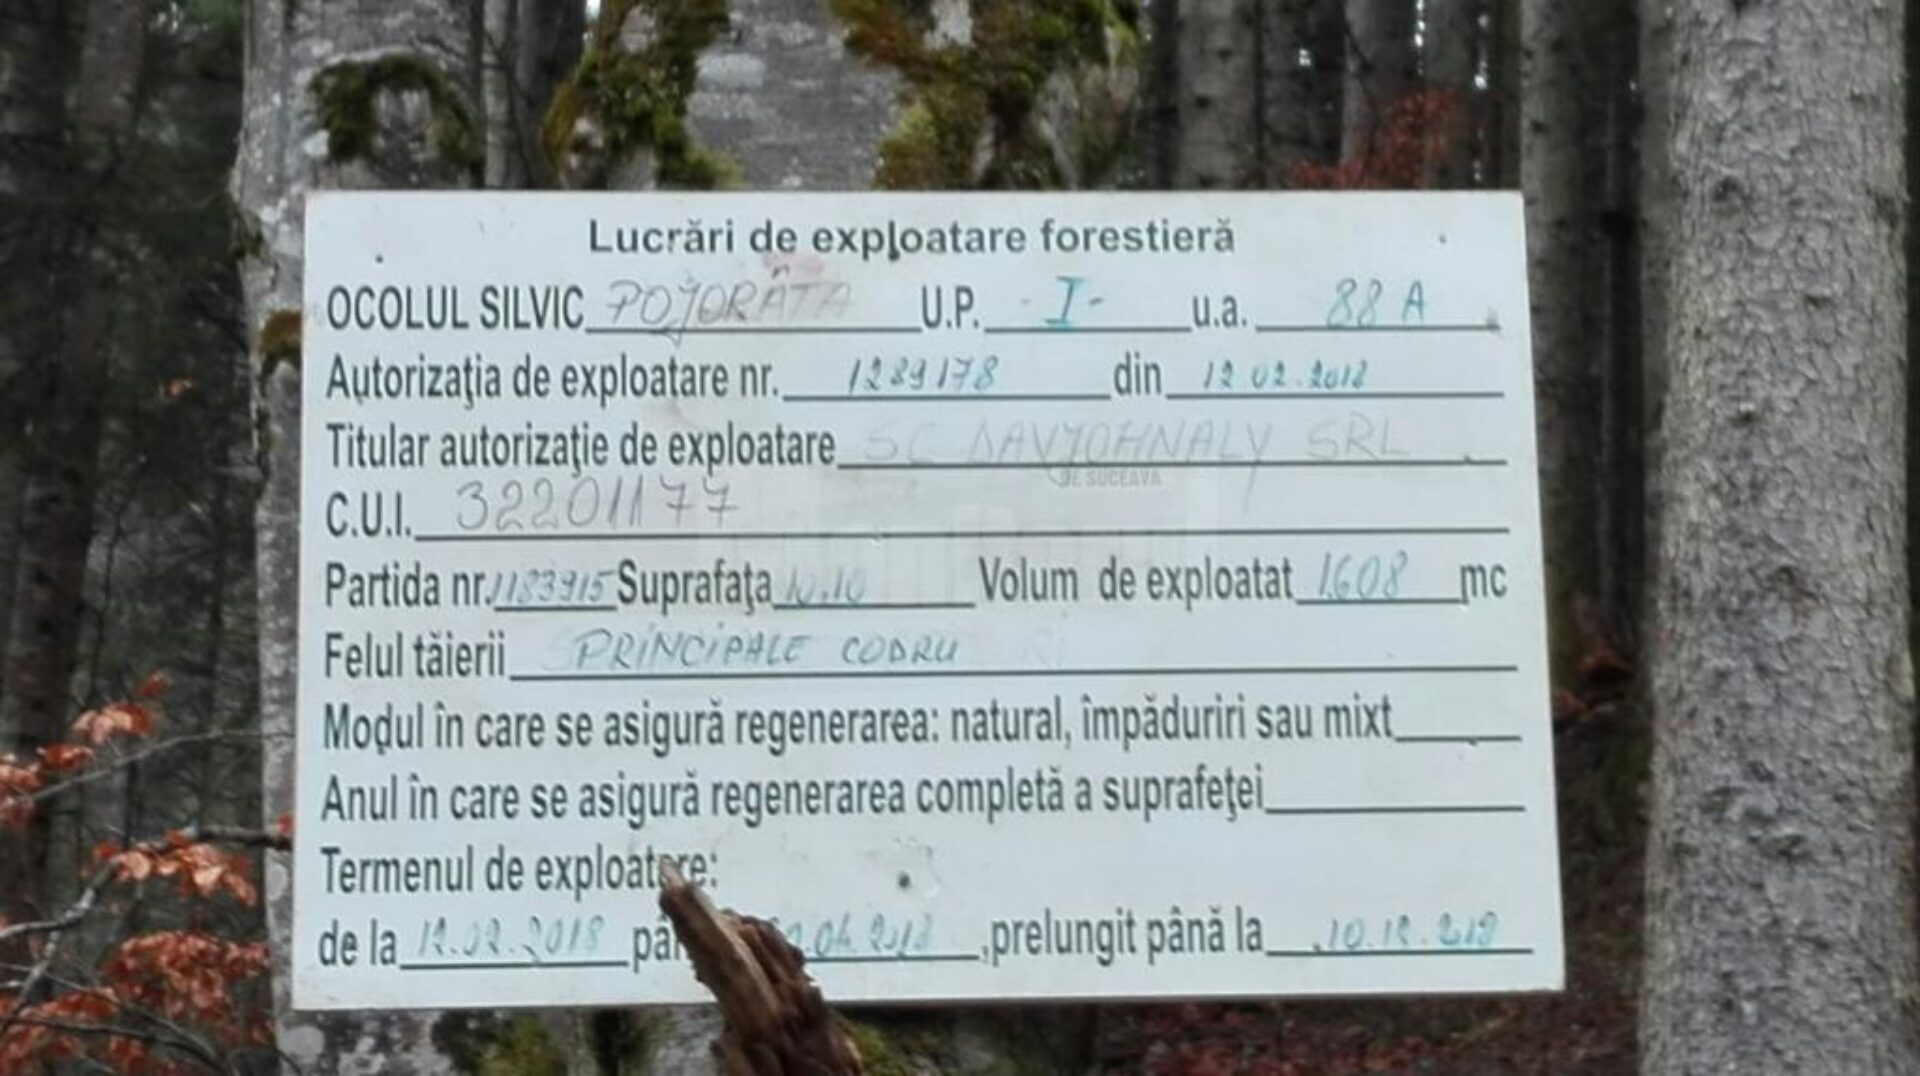 Lucrări de exploatare forestieră
OCOLUL SILVIC POJORÂTA U.P. -I- u.a. 88 A
Autorizaţia de exploatare nr. 1289178 din 12 02.2018
Titular autorizaţie de exploatare SC DAVJOHNALY SRL
DE SUCEAVA
C.U.I. 32201177
Partida nr. 1183915 Suprafaţa 10.10 Volum de exploatat 1608 mc
Felul tăierii PRINCIPALE CODRU
Modul în care se asigură regenerarea: natural, împăduriri sau mixt
Anul în care se asigură regenerarea completă a suprafeţei
Termenul de exploatare:
de la 12.02.2018 .04.2018 ,prelungit până la